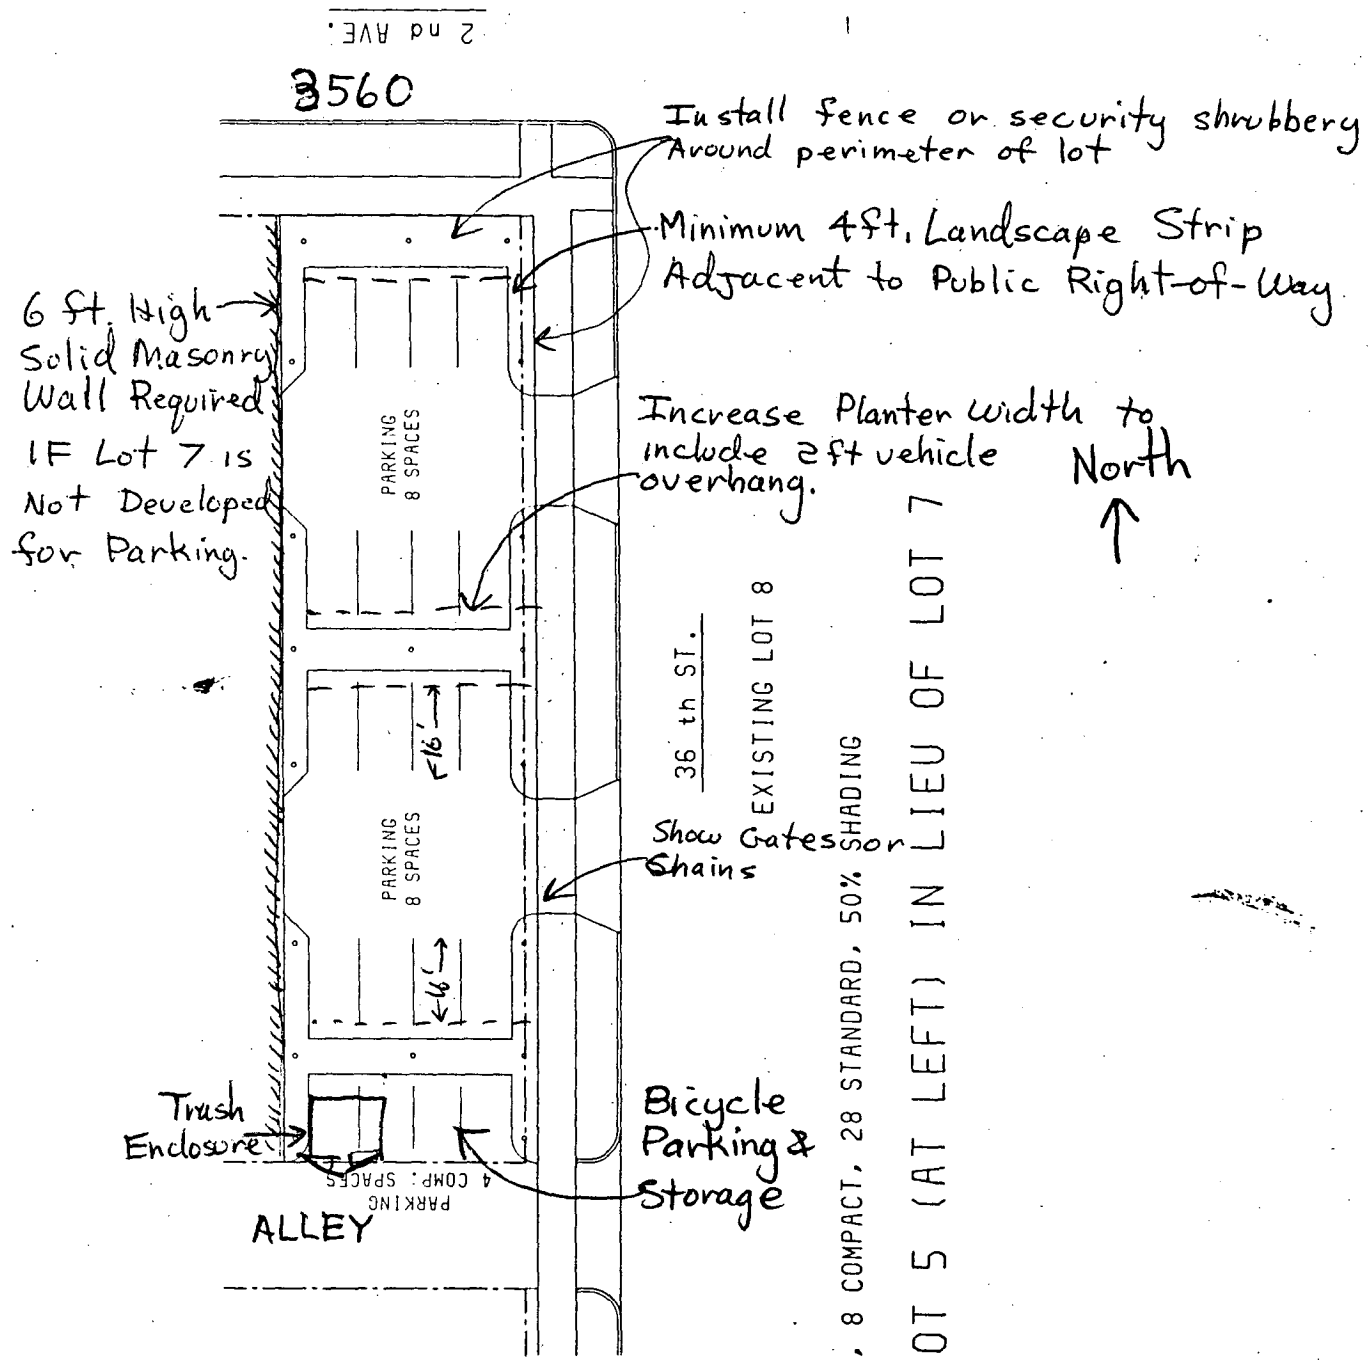 2 nd AVE.
3560
Install fence or security shrubbery
Around perimeter of lot
Minimum 4ft. Landscape Strip
Adjacent to Public Right-of-Way
6 ft. High
Solid Masonry
Wall Required
IF Lot 7 is
Not Developed
for Parking.
PARKING
8 SPACES
Increase Planter width to
include 2ft vehicle
overhang.
North
36 th ST.
EXISTING LOT 8
16'
PARKING
8 SPACES
Show Gates or
Chains
16'
, 8 COMPACT, 28 STANDARD, 50% SHADING
OT 5 (AT LEFT) IN LIEU OF LOT 7
Trash
Enclosure
Bicycle
Parking &
Storage
PARKING
4 COMP: SPACES
ALLEY